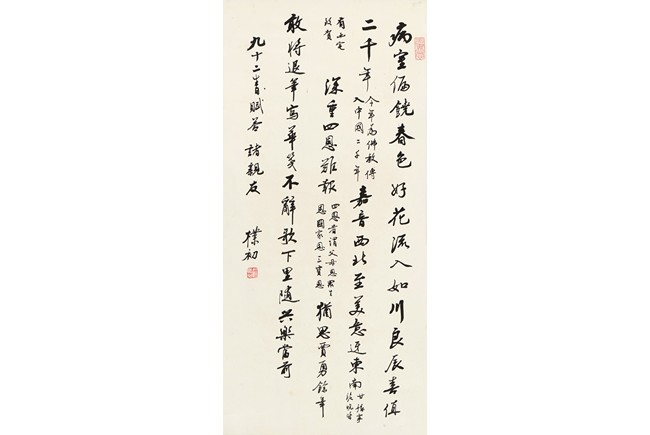 病室偏饒春色好花流入如川良辰喜值
二千年
今年為佛教傳
入中國二千年
嘉音西北至美意迓東南
致賀
深重四恩難報
四恩者謂父母恩眾生
恩國家恩三寶恩
猶思賈勇餘年
敢將退筆寫華箋不辭歌下里隨興樂當前
九十二歲賦答諸親友 樸初